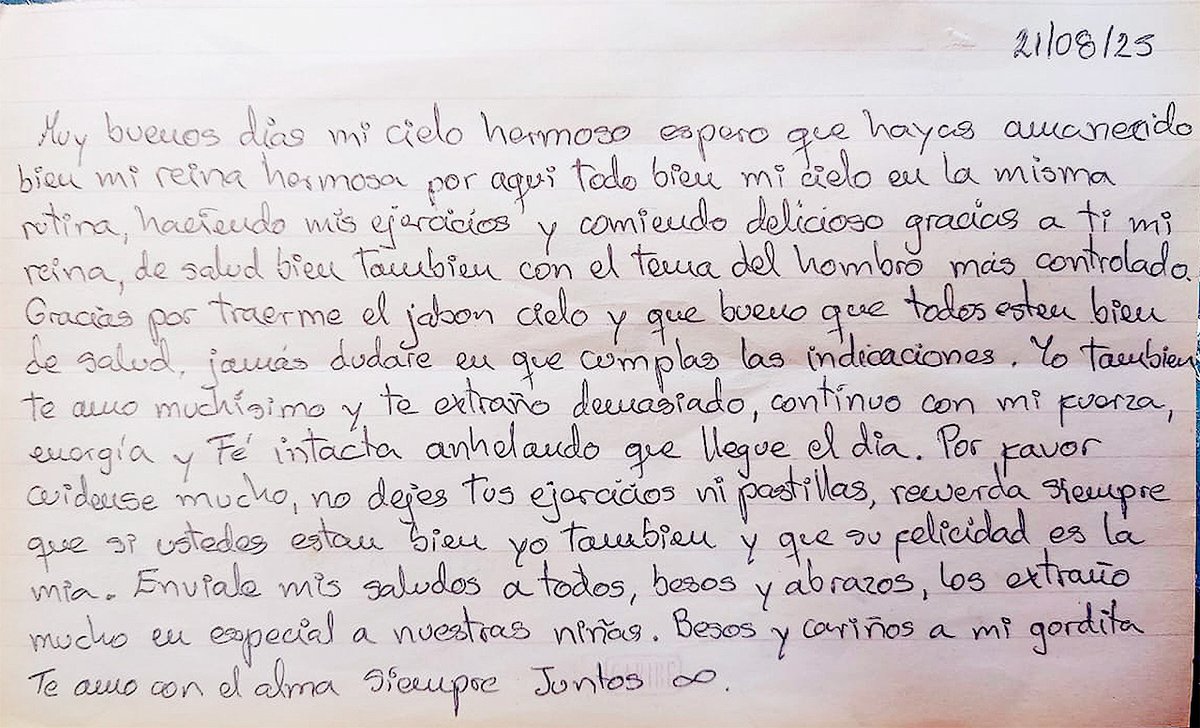 21/08/25
Muy buenos días mi cielo hermoso espero que hayas amanecido
bien mi reina hermosa por aquí todo bien mi cielo en la misma
rutina, haciendo mis ejercicios y comiendo delicioso gracias a ti mi
reina, de salud bien tambien con el tema del hombro más controlado.
Gracias por traerme el jabon cielo y que bueno que todos esten bien
de salud, jamás dudare en que cumplas las indicaciones. Yo tambien
te amo muchísimo y te extraño demasiado, continuo con mi fuerza,
energía y Fé intacta anhelando que llegue el día. Por favor
cuidense mucho, no dejes tus ejercicios ni pastillas, recuerda siempre
que si ustedes estan bien yo tambien y que su felicidad es la
mia. Enviale mis saludos a todos, besos y abrazos, los extraño
mucho en especial a nuestras niñas. Besos y cariños a mi gordita
Te amo con el alma siempre Juntos ∞.